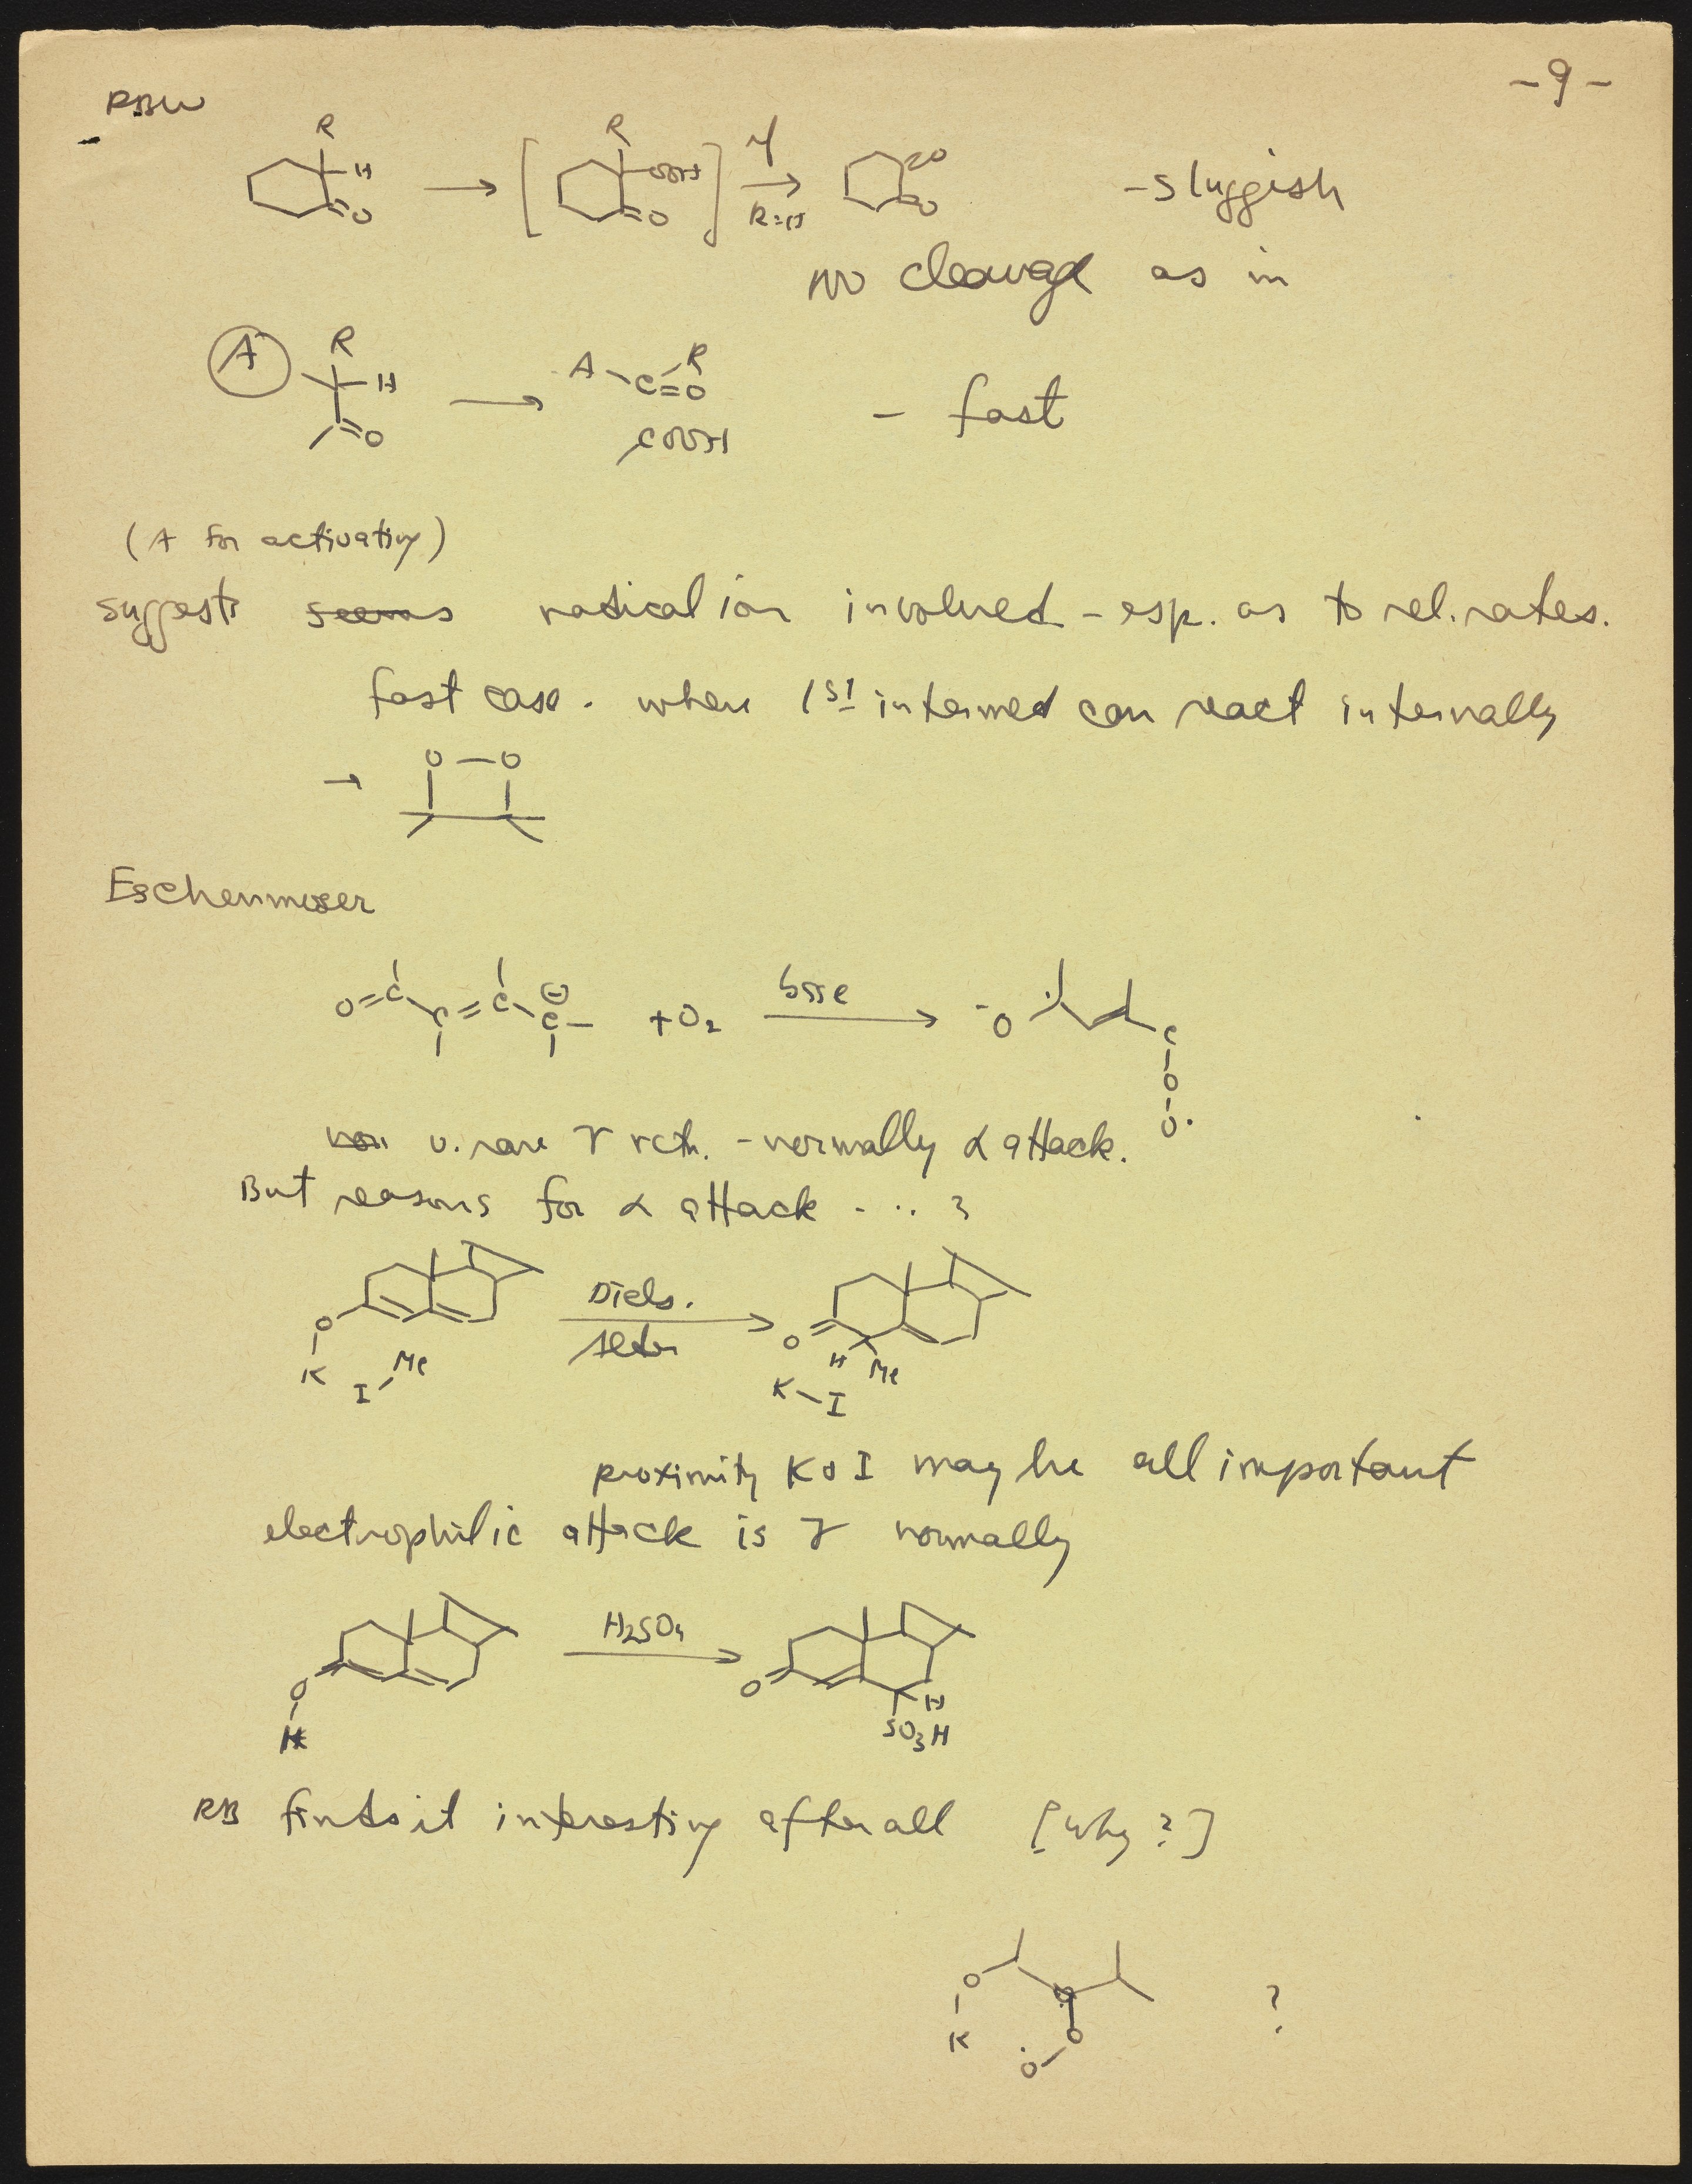 RBW
-9-
R
H
O
R
OOH
O
R=H
O
O
- sluggish
no cleavage as in
A
R
H
O
A - C = O
R
COOH
- fast
(A for activating)
suggests seems radical ion involved - esp. as to rel. rates.
fast case. where 1st intermed can react internally
→ O — O
Eschenmoser
O=C C=C C ⊖ + O2 base -O C
O
O.
v. rare γ rctn. - normally α attack.
But reasons for α attack . . . ?
O
K
I Me
Diels.
Alder
O
H Me
K-I
proximity K & I may be all important
electrophilic attack is γ normally
O
H
H2SO4
O
H
SO3H
RB finds it interesting after all [why?]
O
K
O
O
?